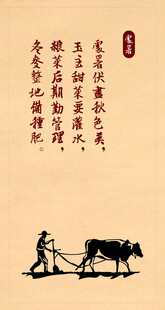 處暑
處暑伏盡秋色美，
玉主甜菜要灌水，
糧菜后期勤管理，
冬麥整地備種肥。